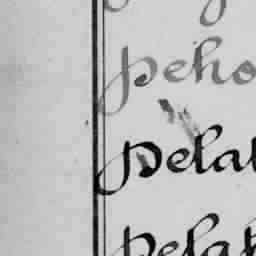 peho
pelal
pelah